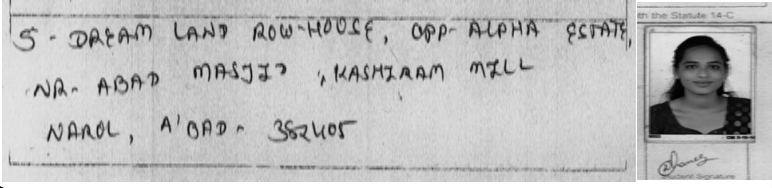 5 - DREAM LAND ROW-HOUSE, OPP- ALPHA ESTATE,
NR- ABAD MASJID, KASHIRAM MILL
NAROL, A'BAD- 382405
th the Statute 14-C
Student Signature